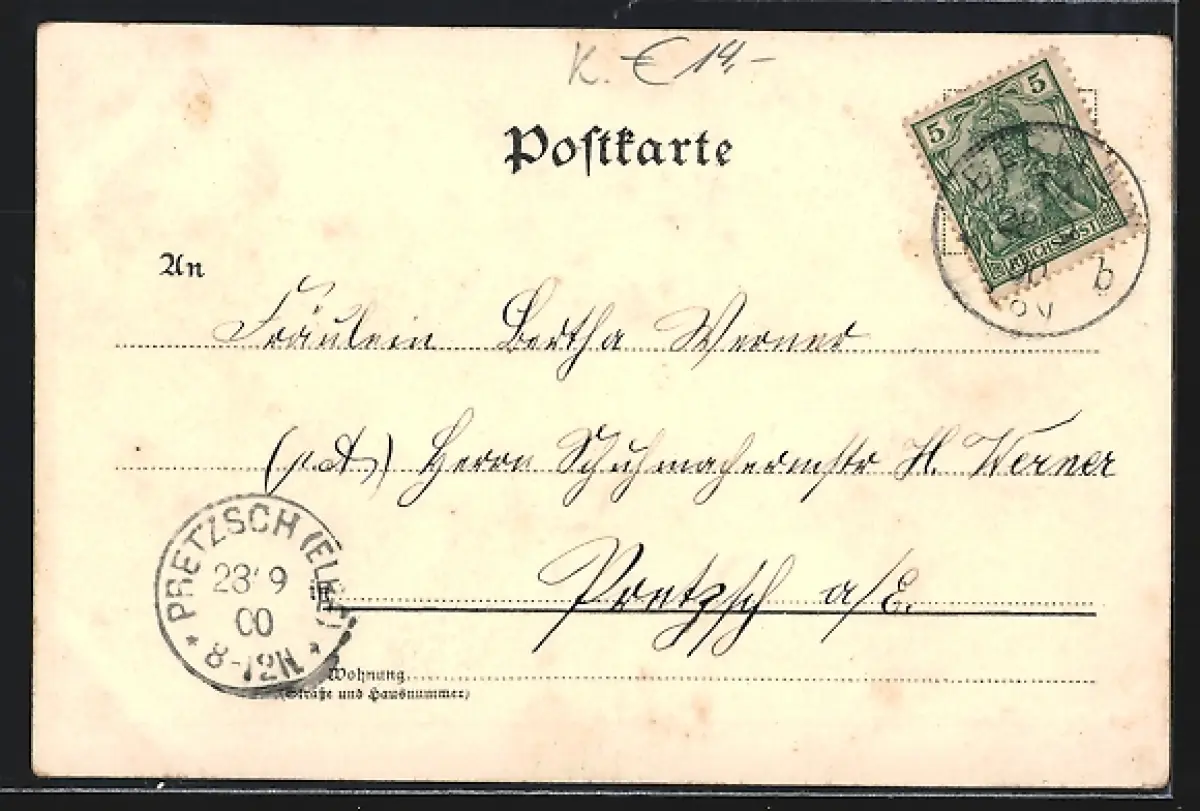 K. € 14,-
Postkarte
5 5
REICHSPOST
An
Fräulein Bertha Werner
Herrn Schuhmachermstr H. Werner
Pretzsch a/E.
PRETZSCH (ELBE)
23 9
00
8-12N
in
Wohnung
(Straße und Hausnummer)